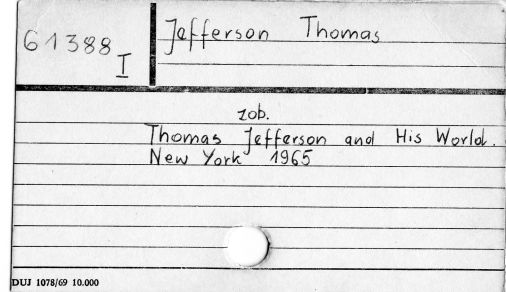 61388
I
Jefferson Thomas
zob.
Thomas Jefferson and His World.
New York 1965
DUJ 1078/69 10.000